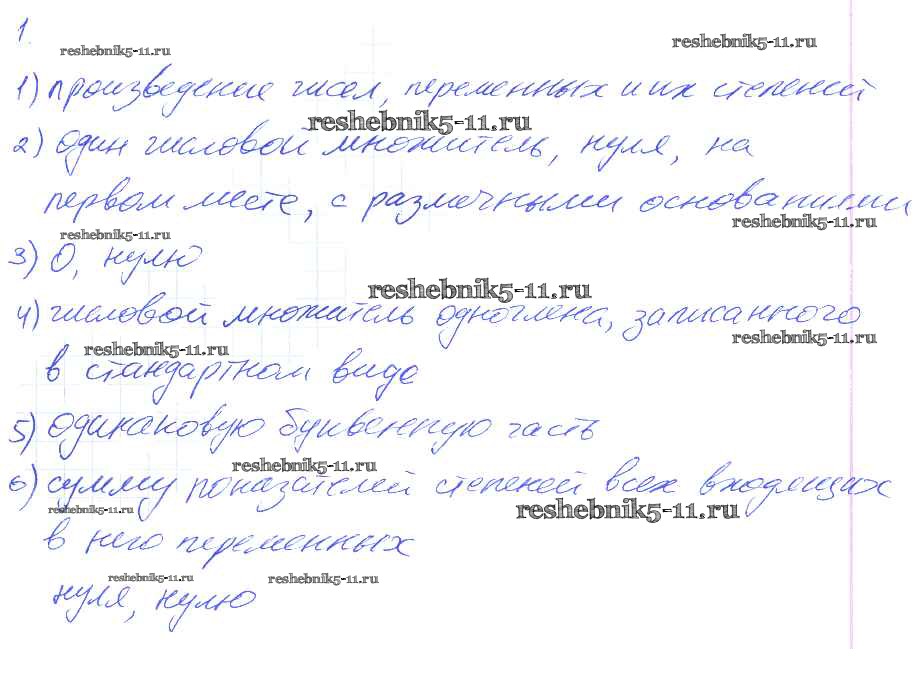 1.
reshebnik5-11.ru
reshebnik5-11.ru
1) произведение чисел, переменных и их степеней
reshebnik5-11.ru
2) один числовой множитель, нуля, на
первом месте, с различными основаниями
reshebnik5-11.ru
reshebnik5-11.ru
3) 0, нулю
reshebnik5-11.ru
4) числовой множитель одночлена, записанного
reshebnik5-11.ru
reshebnik5-11.ru
в стандартном виде
5) одинаковую буквенную часть
reshebnik5-11.ru
6) сумму показателей степеней всех входящих
reshebnik5-11.ru
reshebnik5-11.ru
в него переменных
reshebnik5-11.ru
reshebnik5-11.ru
нуля, нулю